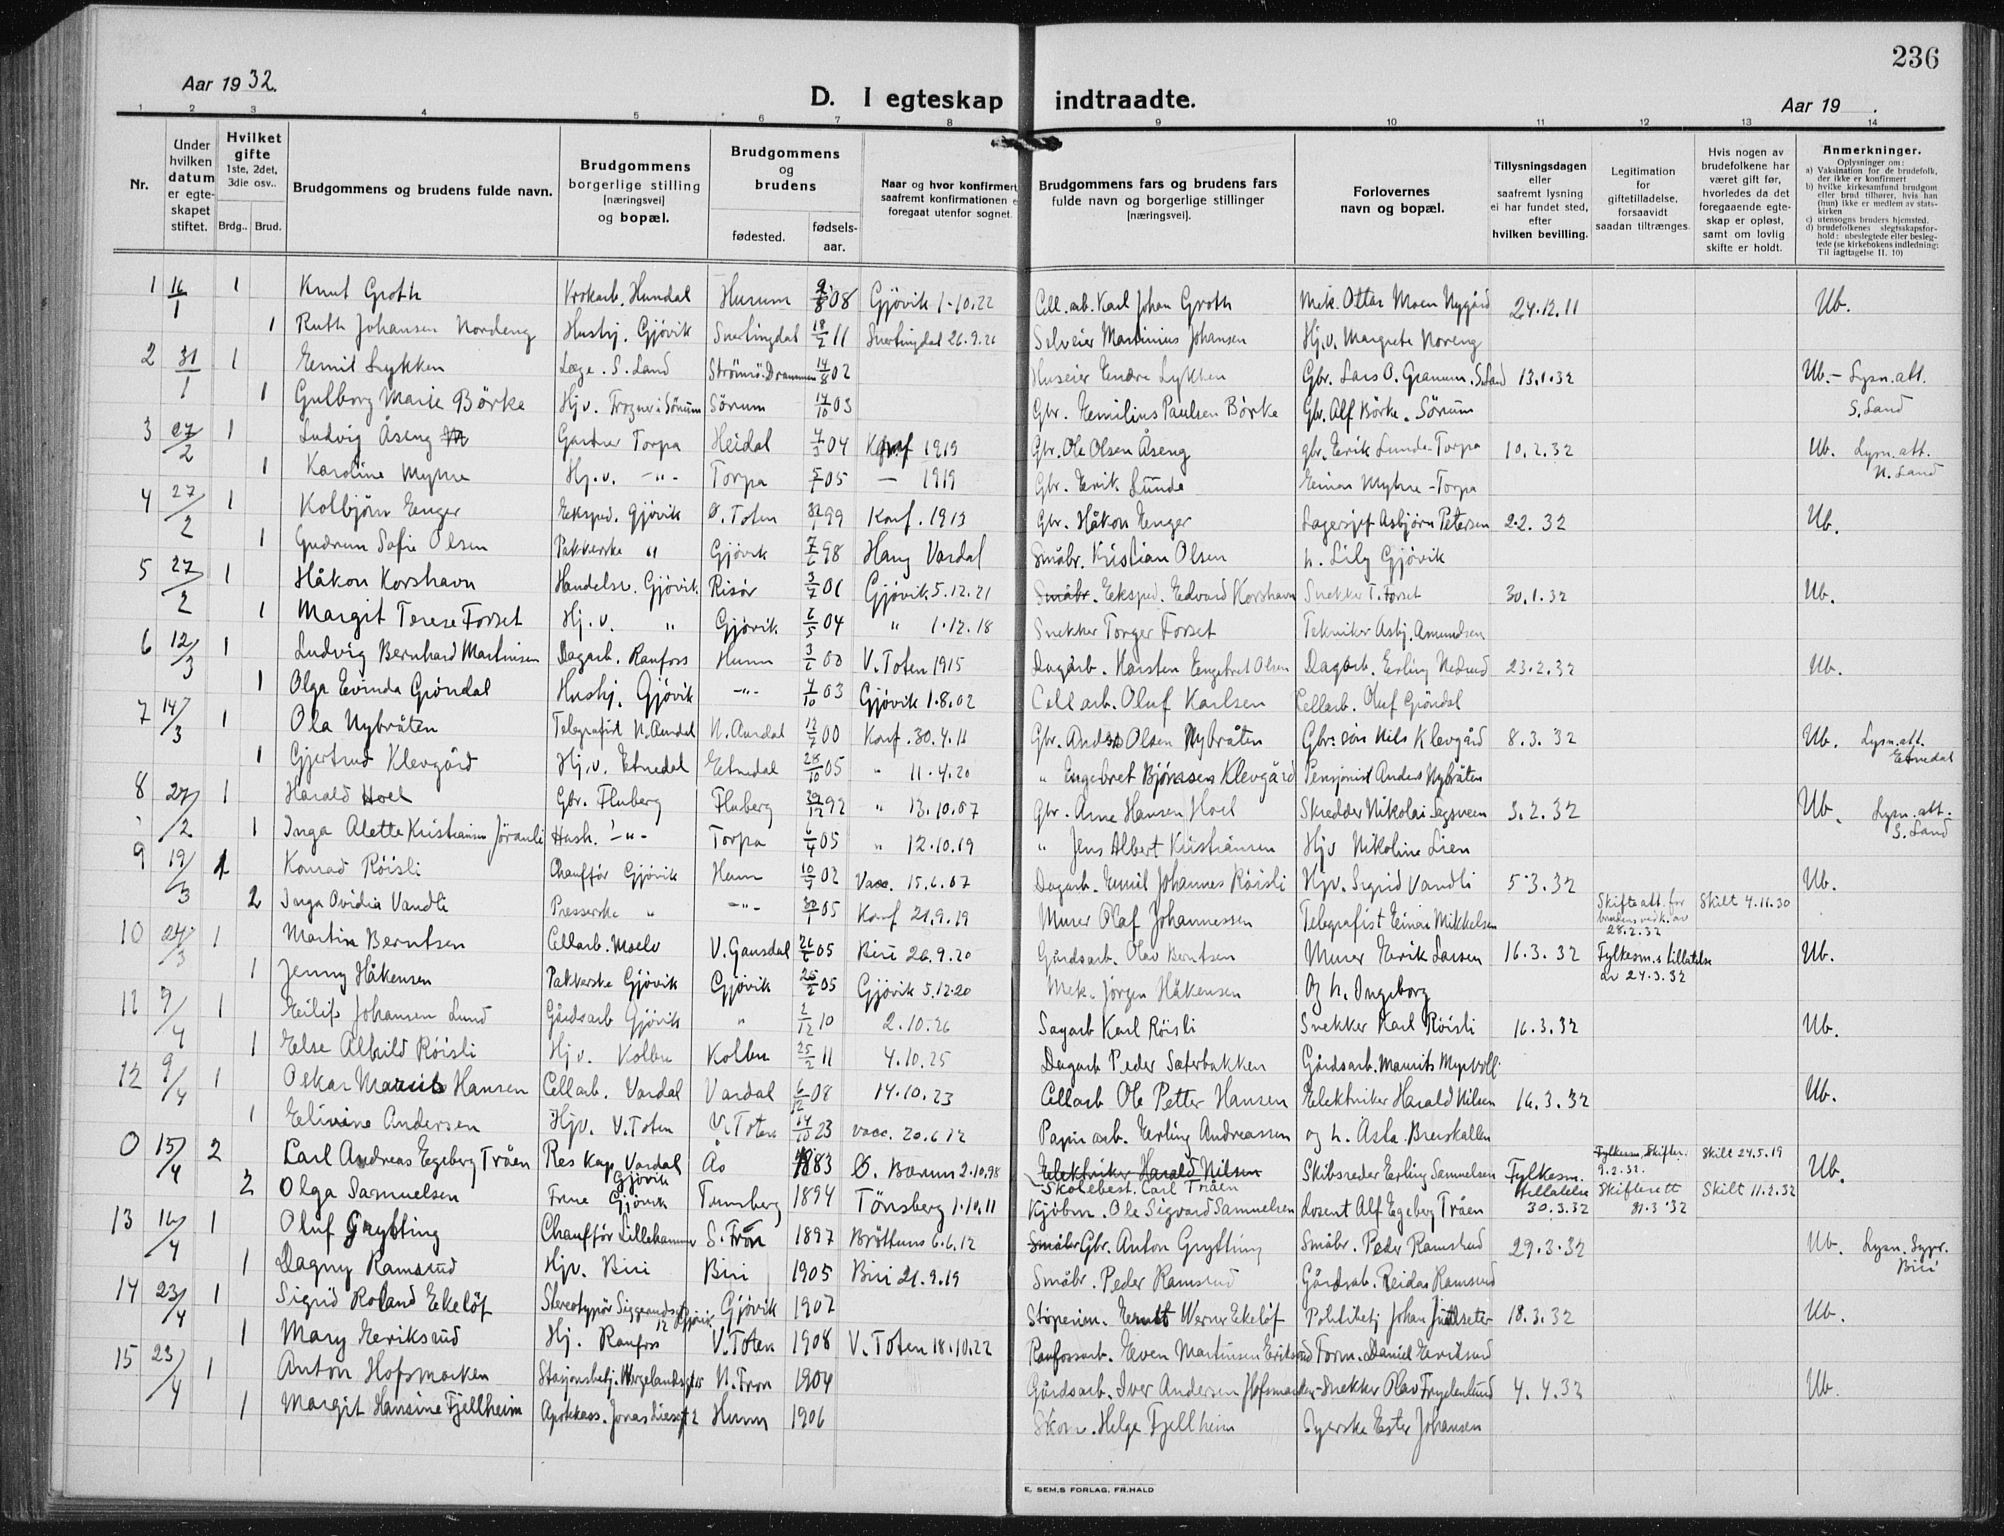 236
Aar 1932.
D. I egteskap indtraadte.
Aar 19 .
1 2 3 4 5 6 7 8 9 10 11 12 13 14
Nr.
Under hvilken datum er egteskapet stiftet.
Hvilket gifte 1ste, 2det, 3die osv..
Brdg.. Brud.
Brudgommens og brudens fulde navn.
Brudgommens borgerlige stilling [næringsvei] og bopæl.
Brudgommens og brudens
fødested. fødsels-aar.
Naar og hvor konfirmert saafremt konfirmationen foregaat utenfor sognet.
Brudgommens fars og brudens fars fulde navn og borgerlige stillinger [næringsvei].
Forlovernes navn og bopæl.
Tillysningsdagen eller saafremt lysning ei har fundet sted, efter hvilken bevilling.
Legitimation for giftetilladelse, forsaavidt saadan tiltrænges.
Hvis nogen av brudefolkene har været gift før, hvorledes da det foregaaende egteskap er opløst, samt om lovlig skifte er holdt.
Anmerkninger.
Oplysninger om:
a) Vaksination for de brudefolk, der ikke er konfirmert
b) hvilke kirkesamfund brudgom eller brud tilhører, hvis han (hun) ikke er medlem av statskirken
c) utensogns bruders hjemsted.
d) brudefolkenes slegtsskapsforhold: ubeslegtede eller beslegtede (se kirkebokens indledning: Til iagttagelse II. 10)
1 16/1 1 Knut Groth Krokarb. Hundal Hurum 9/8 08 Gjövik 1.10.22 Cell. arb. Karl Johan Groth Mek. Ottar Moen Nygård 24.12.11 Ub.
1 Ruth Johansen Nordeng Hushj. Gjövik Snertingdal 18/2 11 Snertingdal 26.9.26 Selveier Martinius Johansen Hj.v. Margrete Noreng
2 31/1 1 Emil Lykken Læge. S. Land Strömsö. Drammen 14/8 02 Huseier Endre Lykken Gbr. Lars O. Granum. S. Land 13.1.32 Ub. - Lysn. att. S. Land
1 Gulborg Marie Börke Hjv. Frogner i Sörum Sörum 14/10 03 Gbr. Emilius Paulsen Börke Gbr. Alf Börke. Sörum
3 27/2 1 Ludvig Åseng Gartner Torpa Heidal 4/3 04 Konf 1919 Gbr. Ole Olsen Åseng gbr. Erik Lunde-Torpa 10.2.32 Ub. Lysn. att. N. Land
1 Karoline Myhre Hj.v. -"- Torpa 5/5 05 — 1919 Gbr. Erik Lunde Einar Myhre - Torpa
4 27/2 1 Kolbjörn Enger Eksped. Gjövik Ø. Toten 99 Konf. 1913 Gbr. Håkon Enger Lagersjef Asbjörn Petersen 2.2.32 Ub.
1 Gudrun Sofie Olsen Pakkerske " Gjövik 7/6 98 Haug Vardal Småbr. Kristian Olsen h. Lily Gjövik
5 27/2 1 Håkon Korshavn Handelsr. Gjövik Risör 3/7 06 Gjövik 5.12.21 Eksped. Edvard Korshavn Snekker T. Forset 30.1.32 Ub.
1 Margit Terese Forset Hj.v. " Gjövik 6/5 04 " 1.12.18 Snekker Torger Forset Tekniker Asbj. Amundsen
6 12/3 1 Ludvig Bernhard Martinsen Dagarb. Raufoss Hunn 3/6 00 V. Toten 1915 Dagarb. Karsten Engebret Olsen Dagarb. Erling Nedrud 23.2.32 Ub.
1 Olga Evinda Gröndal Hushj. Gjövik -"- 7/10 03 Gjövik 1.8.02 Cellarb. Oluf Karlsen Cellarb. Oluf Gröndal
7 14/3 1 Ola Nybråten Telegrafist N. Aurdal N. Aurdal 12/2 00 Konf. 30.4.11 Gbr. Anders Olsen Nybråten Gbr. sön Nils Klevgård 8.3.32 Ub. Lysn. att. Etnedal
1 Gjertrud Klevgård Hj.v. Etnedal Etnedal 28/10 05 " 11.4.20 " Engebret Bjönsen Klevgård Pensjonist Anders Nybråten
8 27/2 1 Harald Hoel Gbr. Fluberg Fluberg 29/12 92 " 13.10.07 Gbr. Arne Hansen Hoel Skredder Nikolai Segsveen 3.2.32 Ub. Lysn. att. S. Land
1 Inga Alette Kristiansen Jöranli Hush. -"- Torpa 6/4 05 " 12.10.19 " Jens Albert Kristiansen Hjv Nikoline Lien
9 19/3 1 Konrad Röisli Chaufför Gjövik Hunn 10/9 02 Vacc. 15.6.07 Dagarb. Emil Johannes Röisli Hjv. Sigrid Vandli 5.3.32 Ub.
2 Inga Ovidia Vandli Presserske " -"- 30/1 05 Konf 21.9.19 Murer Olaf Johannessen Telegrafist Einar Mikkelsen Skifteatt. for brudens vedk. av 28.2.32 Skilt 4.11.30
10 24/3 1 Martin Berntsen Cellarb. Moelv V. Gausdal 26/6 05 Biri 26.9.20 Gårdsarb. Olav Berntsen Murer Erik Larsen 16.3.32 Fylkesm.s tillatelse av 24.3.32 Ub.
1 Jenny Håkensen Pakkerske Gjövik Gjövik 25/2 05 Gjövik 5.12.20 Mek. Jørgen Håkensen og h. Ingeborg
11 9/4 1 Eilif Johansen Lund Gårdsarb Gjövik " 2/12 10 2.10.26 Sagarb Karl Röisli Snekker Karl Röisli 16.3.32 Ub.
1 Else Alhild Röisli Hj v. Kolbu Kolbu 25/2 11 4.10.25 Dagarb Peder Sæterbakken Gårdsarb. Maurits Myrvoll
12 9/4 1 Oskar Maurits Hansen Cellarb. Vardal Vardal 6/12 08 14.10.23 Cellarb Ole Petter Hansen Elektriker Harald Nilsen 16.3.32 Ub.
1 Elivine Andersen Hjv. V. Toten V. Toten 14/10 23 vacc. 20.6.12 Papirarb. Erling Andreassen og h. Åsta Breiskallen
0 15/4 2 Carl Andreas Egeberg Tråen Res Kap. Vardal Gjövik Ås 1883 Ø. Bærum 2.10.98 Elektriker Harald Nilsen Skolebest. Carl Tråen Skibsreder Erling Samuelsen Fylkesm. tillatelse 30.3.32 Fylkesm. Skifter. 9.2.32. Skilt 24.5.19 Ub.
2 Olga Samuelsen Frue Gjövik Tunsberg 1894 Tönsberg 1.10.11 Kjöbm. Ole Sigvard Samuelsen Dosent Alf Egeberg Tråen Skifterett 31.3.32 Skilt 11.2.32
13 16/4 1 Oluf Grytting Chaufför Lillehammer S. Fron 1897 Bröttum 6.6.12 Småbr Gbr. Anton Grytting Småbr. Peder Ramsrud 29.3.32 Ub. Lysn. Sypr. Biri
1 Dagny Ramsrud Hjv. Biri Biri 1905 Biri 21.9.19 Småbr. Peder Ramsrud Gårdsarb. Reidar Ramsrud
14 23/4 1 Sigrid Roland Ekelöf Stereotypör Siggerudsgt 12 Gjövik Gjövik 1907 Støperien. Ernst Werner Ekelöf Politibetj Johan Juelseter 18.3.32 Ub.
1 Mary Eriksrud Hj. Raufoss V. Toten 1908 V. Toten 18.10.22 Raufossarb. Even Martinsen Eriksrud Form. Daniel Eriksrud
15 23/4 1 Anton Hofsmarken Stasjonsbetj. Wergelandsgt 15 N. Fron 1904 Gårdsarb. Iver Andersen Hofsmarken Snekker Olav Frydenlund 4.4.32 Ub.
1 Margit Hansine Fjellheim Apotekass. Jonas Liesgt 2 Hunn 1906 Skom. Helge Fjellheim Syerske Ester Johansen
E. SEM.S FORLAG, FR.HALD